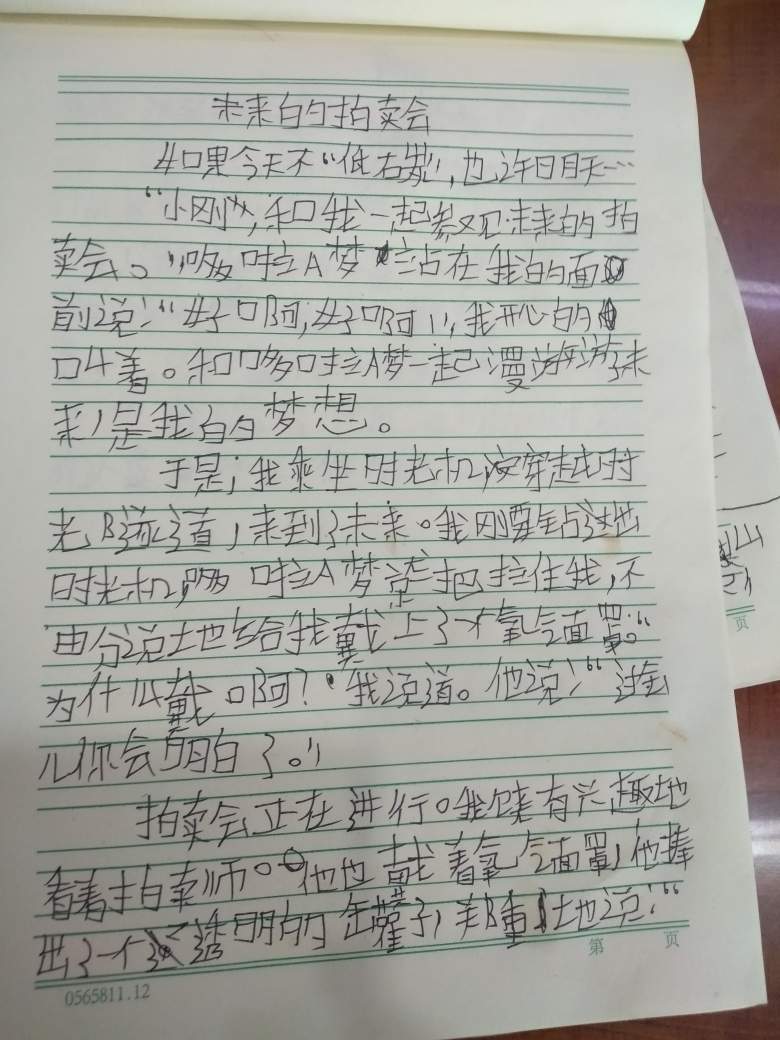 未来的拍卖会
如果今天不“低右崴”,也许明天…
“小刚”,和我一起参观未来的拍
卖会。”哆啦A梦站在我的面
前说:“好啊,好啊”,我开心的
叫着。和哆啦A梦一起漫游未
来,是我的梦想。
于是,我乘坐时光机,穿越时
光隧道,来到了未来。我刚要钻出
时光机,哆啦A梦一把拦住我,不
由分说地给我戴上了个氧气面罩。“
为什么戴啊?”我说道。他说:“过会
儿你会明白了。”
拍卖会正在进行。我饶有兴趣地
看着拍卖师。他也戴着氧气面罩,他捧
出了一个透明的罐子,郑重地说:“
第 页
0565811.12
页